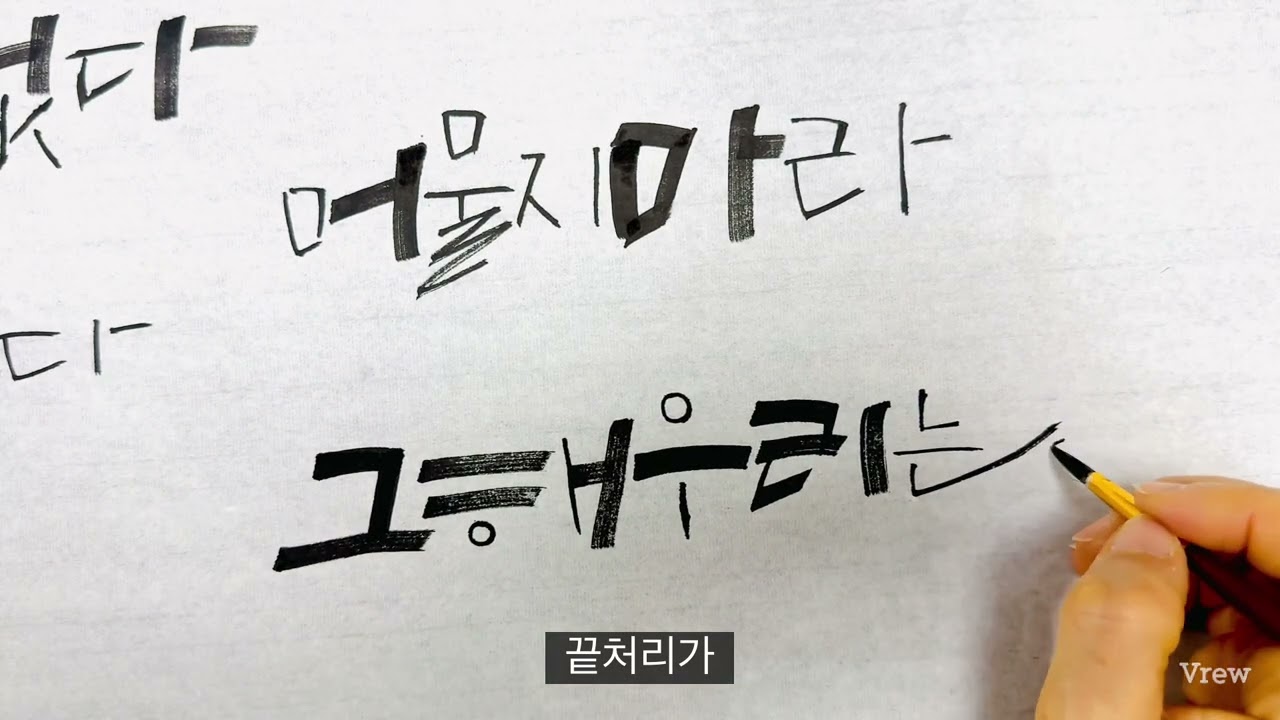 다
머물지마라
다
그해우리는
끝처리가
Vrew